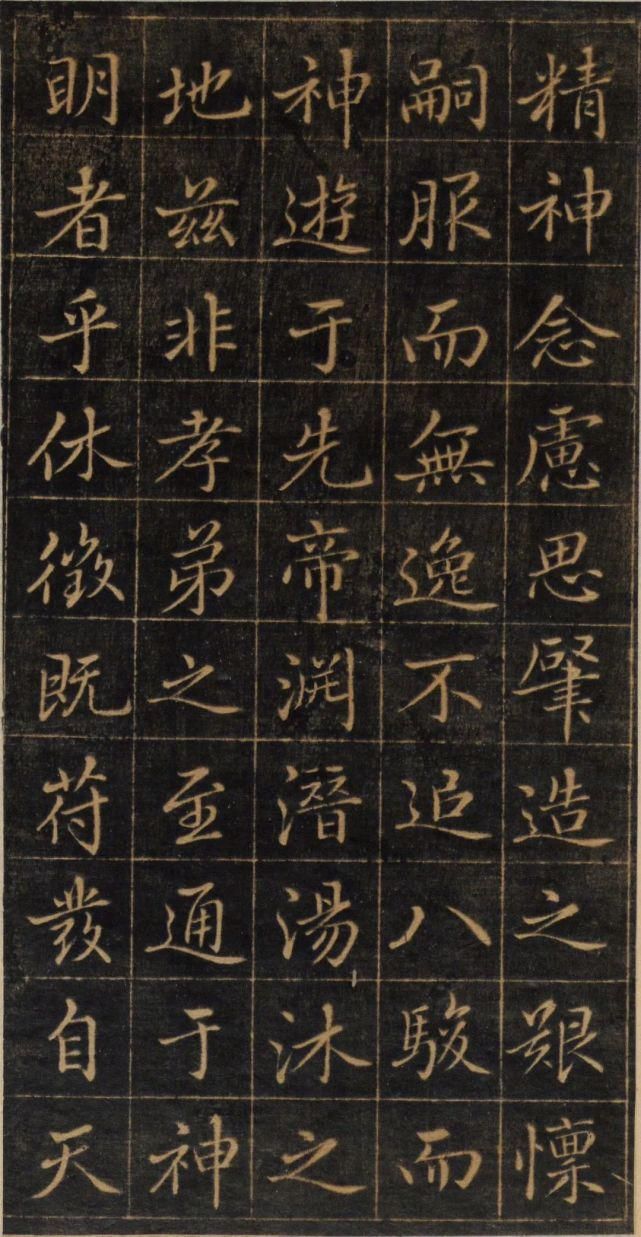 精神念慮思肇造之艱懔
嗣服而無逸不追八駿而
神遊于先帝渊潛湯沐之
地兹非孝弟之至通于神
明者乎休徵既苻發自天